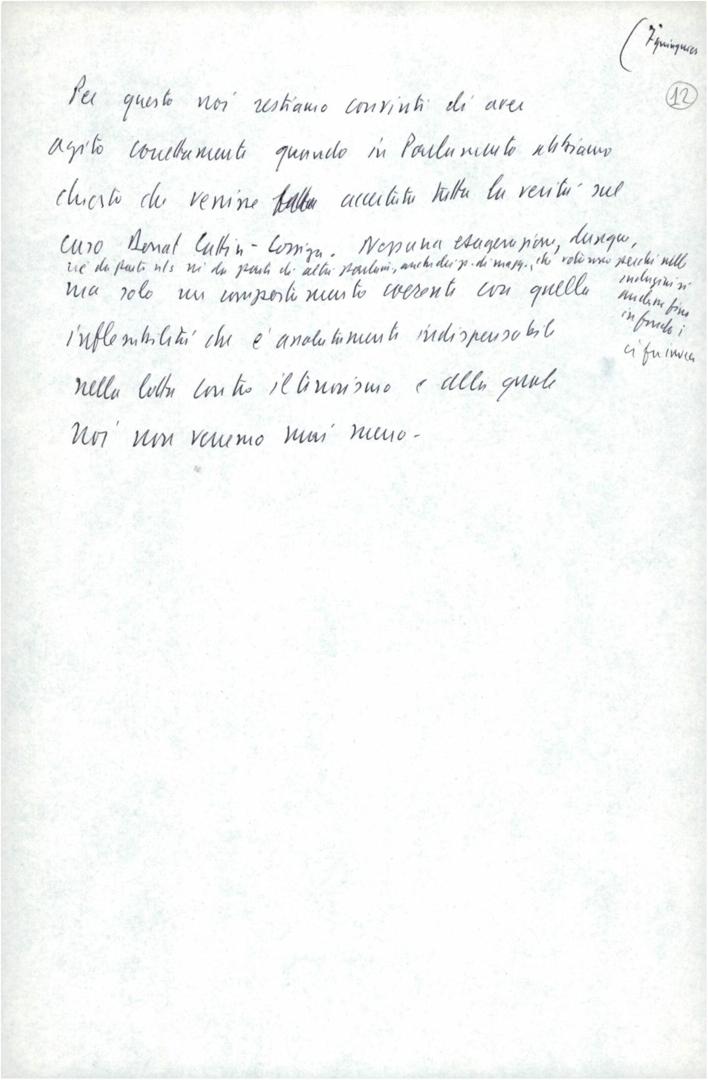 (7 quinquies
12
Per questo noi restiamo convinti di aver
agito correttamente quando in Parlamento abbiamo
chiesto che venisse fatta accertata tutta la verità sul
caso Donat Cattin - Cossiga. Nessuna esagerazione, dunque,
né da parte ns né da parte di altri parlam., anche dei p. di magg., che votarono perché nelle
indagini si
andasse fino
in fondo
ma solo un comportamento coerente con quella
inflessibilità che è assolutamente indispensabile
nella lotta contro il terrorismo e alla quale
noi non verremo mai meno -